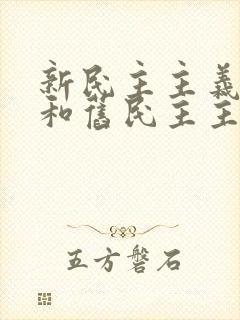 新民主主義
和舊民主主
五方磐石